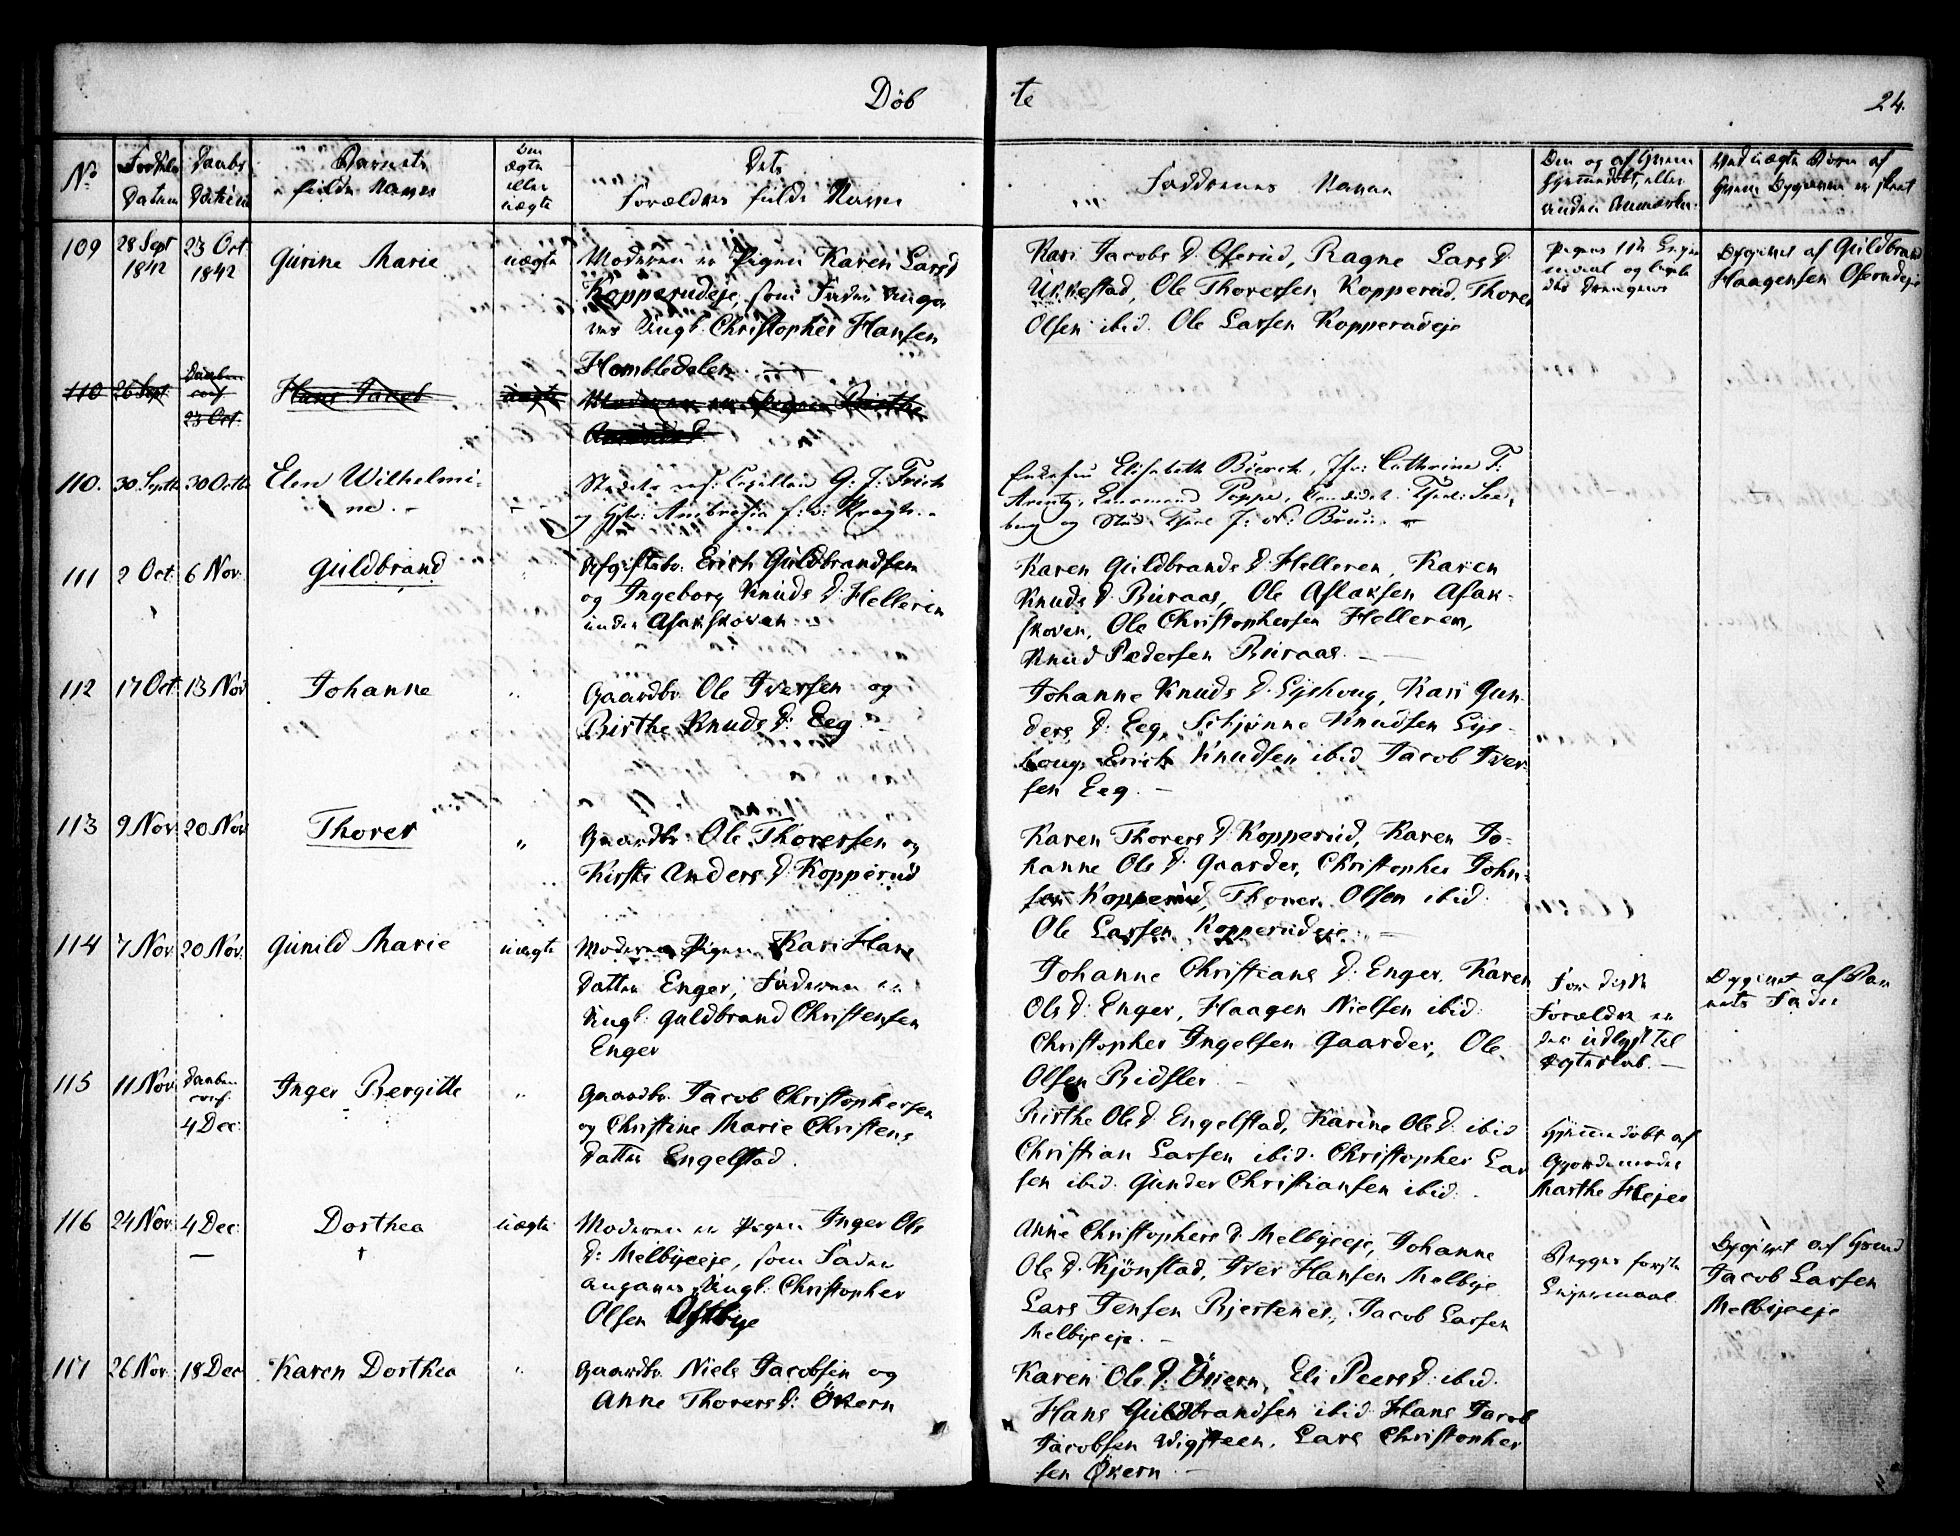 Döb te 24.
No
Fødsels Datum
Daabs Datum
Barnets fulde Navn
Om ægte eller uægte
Dets Forældres fulde Navne
Faddernes Navne
Om og af hvem hjemmedøbt, eller anden Anmærkn.
Ved uægte Børn af hvem Opgaven er skeet
109
28 Sept 1842
23 Oct 1842
Gurine Marie
uægte
Moderen er Pigen Karen Lars d
Kopperudeje, som Fader angi-
ves Ungk. Christopher Hansen
Hombledalen
Kari Jacobs d. Oserud, Ragne Lars d.
Ukkestad, Ole Thoresen Kopperud, Thorer
Olsen ibid. Ole Larsen Kopperudeje
Pigens 1ste Leger
maal og
det Drengens
Opgivet af Guldbrand
Haagensen Oserudeje
110
26 Sept.
Daaben
conf.
23 Oct.
Hans Jacob
uægte
Moderen er Pigen Birthe
110.
30 Septb
30 Octb
Elen Wilhelmi-
ne.
G: J: Frich
og Ambrosia f: v: Kragh.
Enkefru Elisabeth Bierch, Jfr: Cathrine F:
Arentz, Poppe,
og Stud: J: N: Bruun.
111
2 Oct.
6 Nov:
Guldbrand
Afgiftsbr. Erich Guldbrandsen
og Ingeborg Knuds d. Helleren
under Asakskoven
Karen Guldbrands d Helleren, Karen
Knuds d. Buraas, Ole Aslaksen Asak-
skoven, Ole Christophersen Helleren,
Knud Pedersen Buraas.
112
17 Oct.
13 Nov
Johanne
Gaardbr. Ole Iversen og
Birthe Knuds d: Eeg.
Johanne Knuds d. Lyshoug, Kari Gun-
ders d. Eeg, Knudsen Lys-
houg, Erich Knudsen ibid Jacob Iver-
sen Eeg.
113
9 Nov:
20 Nov
Thorer
"
Gaardbr. Ole Thoresen og
Kirsti Anders d. Kopperud
Karen Thorers d. Kopperud, Karen Jo-
hanne Ols d. Gaarder, Christopher John-
sen Kopperud, Thorer Olsen ibid.
Ole Larsen Kopperudeje.
114
7 Nov
20 Nov.
Gunild Marie
uægte
Moderen Pigen Kari Hans
datter Enger, Faderen er
Ungk: Guldbrand Christensen
Enger
Johanne Christians d. Enger, Karen
Ols d: Enger, Haagen Nielsen ibid.
Christopher Ingelsen Gaarder, Ole
Olsen Ridsler.
For disse
Forældre er
der udlyst til
Ægteskab.
Opgivet af Bar
nets Fader
115
11 Nov:
Daaben
conf.
4 Dec:
Inger Bergitte
Gaardbr. Jacob Christophersen
og Christine Marie Christens
datter Engelstad.
Birthe Ols d. Engelstad, Karine Ols d: ibid
Christian Larsen ibid. Christopher Lar
sen ibid. Gunder Christiansen ibid.
Hjemmedøbt af
Gjordemoder
Marthe Hejer
116
24 Nov:
4 Dec:
Dorthea
†
uægte
Moderen er Pigen Inger Ols
d: Melbyeeje, som Fader
angives Ungk: Christopher
Olsen Østbye
Anne Christophers d: Melbyeeje, Johanne
Ols d. Kjönstad, Iver Hansen Melbye
Lars Jensen Bjertenes, Jacob Larsen
Melbyeeje.
Begges første
Lejermaal
Opgivet af
Jacob Larsen
Melbyeeje
117
26 Nov.
18 Dec
Karen Dorthea
Gaardbr. Niels Jacobsen og
Anne Thorers d: Ökern
Karen Ols d: Ökern, Eli Peers d: ibid.
Hans Guldbrandsen ibid Hans Jacob
Jacobsen Vigsteen. Lars Christopher
sen Ökern.